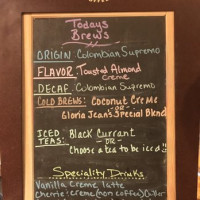 Todays
Brew's
ORIGIN: Colombian Supremo
FLAVOR: Toasted Almond
Creme
DECAF: Colombian Supremo
COLD BREWS: Coconut Creme
-OR-
Gloria Jean's Special Blend
ICED TEAS: Black Currant
-OR-
Choose a tea to be iced!!
Specialty Drinks
Vanilla Creme latte
Cherrie creme (non coffee)